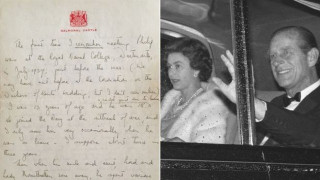 BALMORAL CASTLE
The first time I remember meeting Philip
was at the Royal Naval College, Dartmouth,
in July 1939, just before the war. (We
may have met before at the Coronation or the
Duke of Kent's wedding, but I don't remember
I was 13 years of age and he was 18
He joined the Navy at the outbreak of war and
I only saw him very occasionally when he
was on leave - I suppose about twice in
three years.
Then when his uncle and aunt, Lord and
Lady Mountbatten were away, he spent various